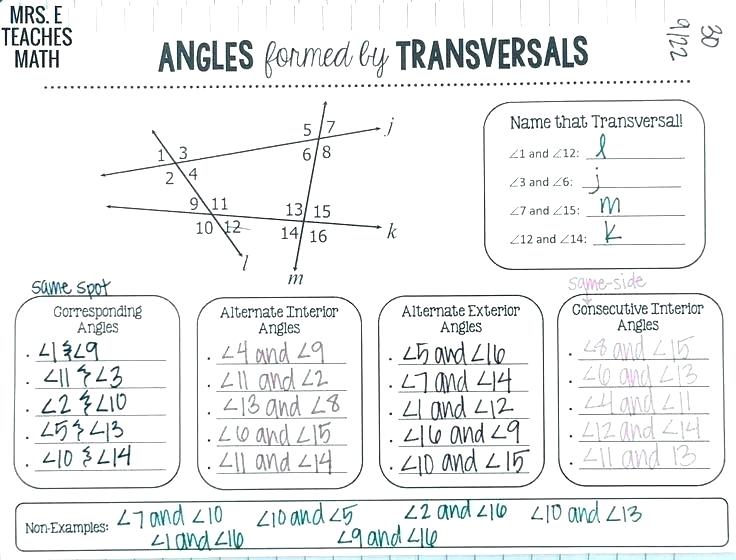 MRS. E
TEACHES
MATH
30
9/22
ANGLES formed by TRANSVERSALS
5 7 j
6 8
1 3
2 4
9 11
10 12
13 15
14 16
k
l
m
Name that Transversal!
∠1 and ∠12: l
∠3 and ∠6: j
∠7 and ∠15: m
∠12 and ∠14: k
same spot
Corresponding
Angles
. ∠1 & ∠9
. ∠11 & ∠3
. ∠2 & ∠10
. ∠5 & ∠13
. ∠10 & ∠14
Alternate Interior
Angles
. ∠4 and ∠9
. ∠11 and ∠2
. ∠13 and ∠8
. ∠6 and ∠15
. ∠11 and ∠14
Alternate Exterior
Angles
. ∠5 and ∠16
. ∠7 and ∠14
. ∠1 and ∠12
. ∠16 and ∠9
. ∠10 and ∠15
same-side
Consecutive Interior
Angles
. ∠8 and ∠15
. ∠6 and ∠13
. ∠4 and ∠11
. ∠12 and ∠14
. ∠11 and 13
Non-Examples: ∠7 and ∠10 ∠10 and ∠5 ∠2 and ∠16 ∠10 and ∠13
∠1 and ∠16 ∠9 and ∠16